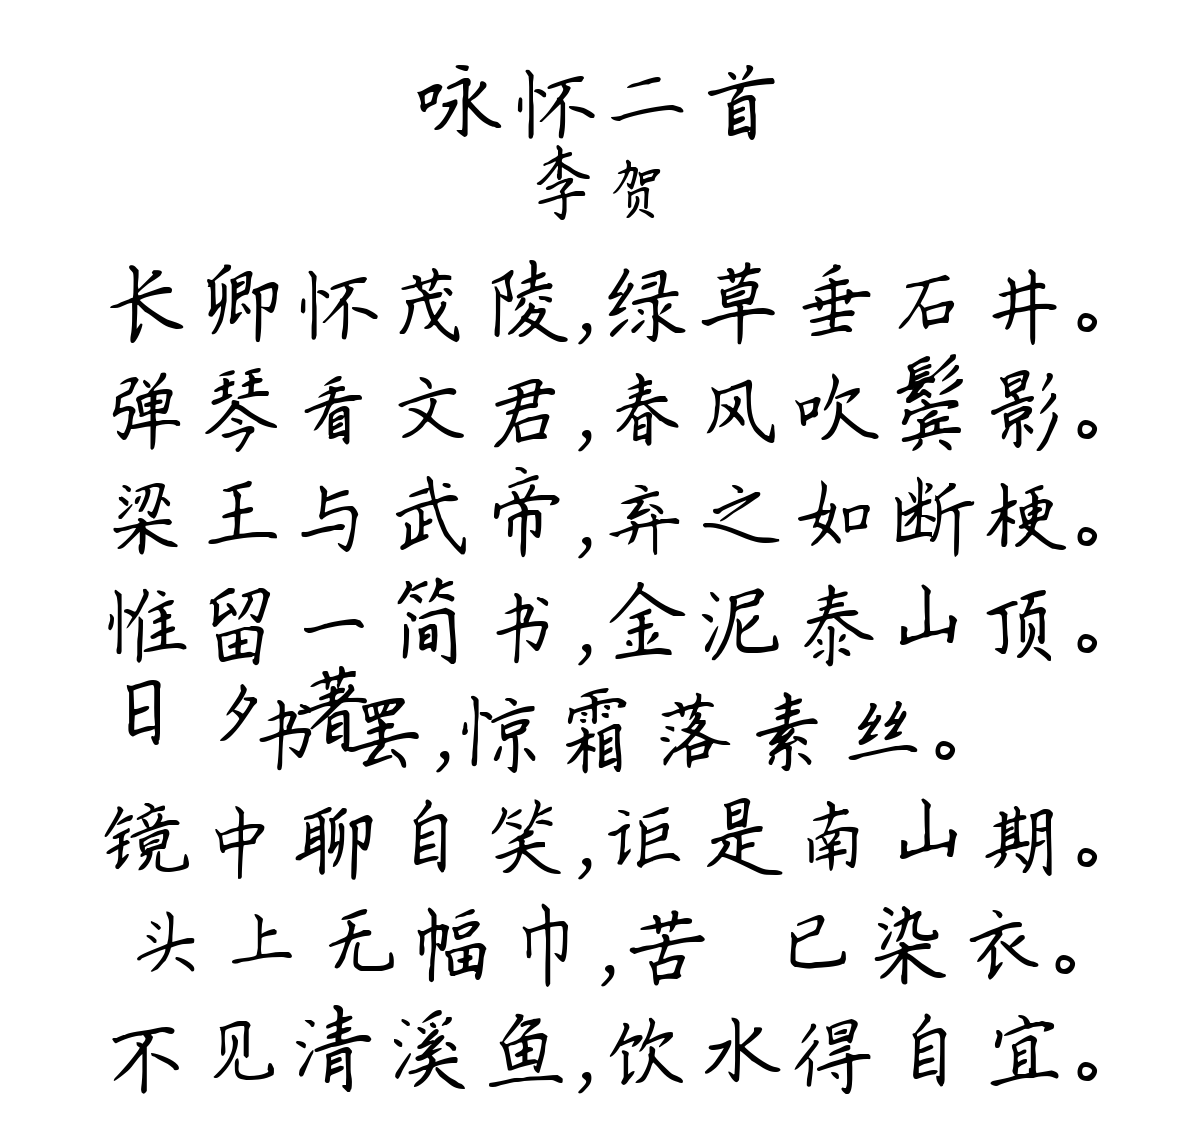 咏怀二首
李贺
长卿怀茂陵,绿草垂石井。
弹琴看文君,春风吹鬓影。
梁王与武帝,弃之如断梗。
惟留一简书,金泥泰山顶。
日夕书著罢,惊霜落素丝。
镜中聊自笑,讵是南山期。
头上无幅巾,苦 已染衣。
不见清溪鱼,饮水得自宜。